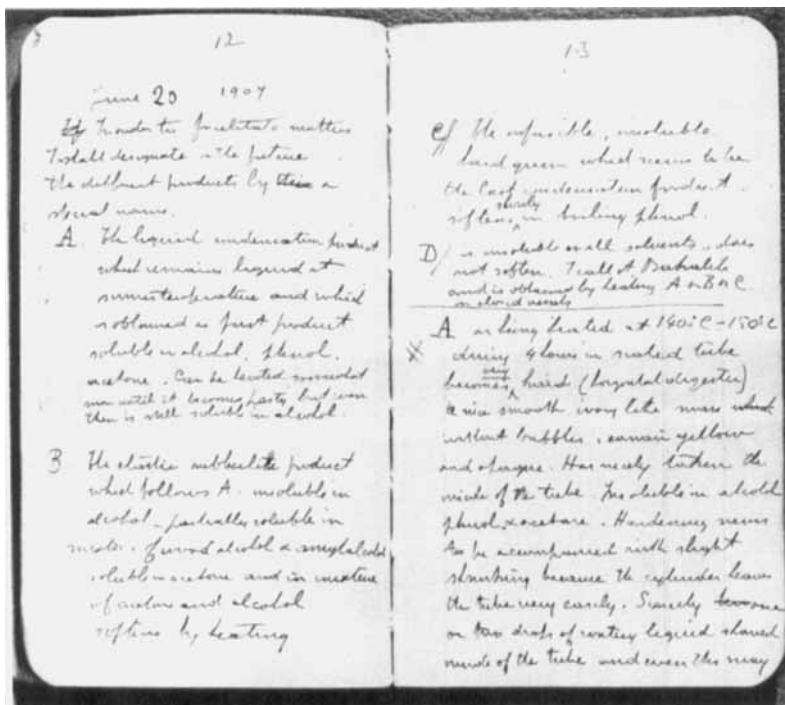 12
June 20 1907
In order to facilitate matters
I shall designate in the future
the different products by a
special name.
A. The liquid condensation product
which remains liquid at
and which
is obtained as first product
soluble in alcohol, phenol,
acetone. Can be heated somewhat
more until it becomes pasty but even
then is still soluble in alcohol.
B The elastic rubberlike product
which follows A. insoluble in
alcohol, partially soluble in
of wood alcohol & amylalcohol
soluble in acetone and in mixture
of acetone and alcohol
softens by heating
13
C/ The infusible, insoluble
hard which seems to be
the last condensation product.
softens in boiling phenol.
D/ is insoluble in all solvents, does
not soften. I call it Bakalite
and is obtained by heating A or B or C
in closed vessels
A on being heated at 140°C-150°C
during 4 hours in sealed tube
becomes very hard (horizontal digester)
a nice smooth ivory like mass
without bubbles, yellow
and opaque. Has nicely taken the
inside of the tube. Insoluble in alcohol
phenol, & acetone. Hardening seems
to be accompanied with slight
shrinking because the cylinder leaves
the tube very easily. Scarcely one
or two drops of watery liquid showed
inside of the tube and even this may